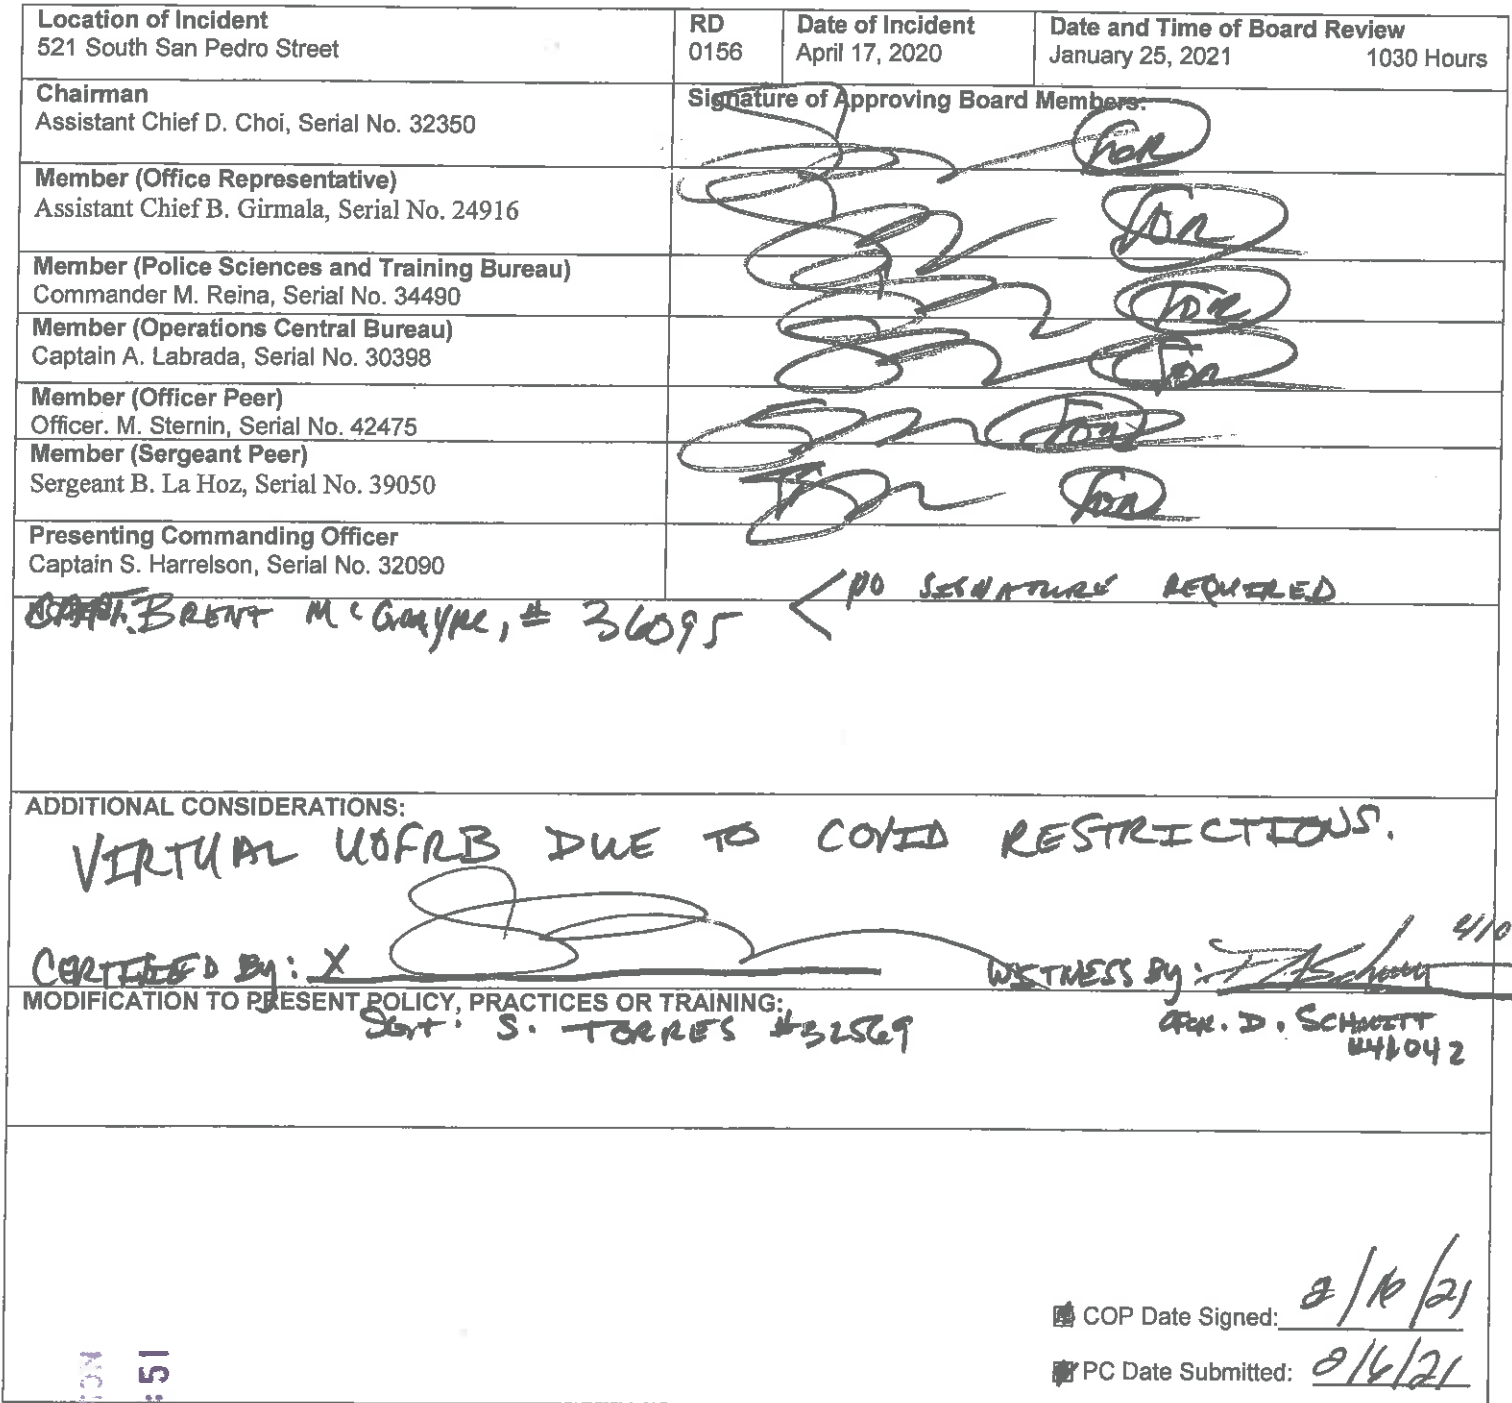 Location of Incident
521 South San Pedro Street
RD
0156
Date of Incident
April 17, 2020
Date and Time of Board Review
January 25, 2021 1030 Hours
Chairman
Assistant Chief D. Choi, Serial No. 32350
Signature of Approving Board Members:
FOR
Member (Office Representative)
Assistant Chief B. Girmala, Serial No. 24916
FOR
Member (Police Sciences and Training Bureau)
Commander M. Reina, Serial No. 34490
FOR
Member (Operations Central Bureau)
Captain A. Labrada, Serial No. 30398
FOR
Member (Officer Peer)
Officer. M. Sternin, Serial No. 42475
FOR
Member (Sergeant Peer)
Sergeant B. La Hoz, Serial No. 39050
FOR
Presenting Commanding Officer
Captain S. Harrelson, Serial No. 32090
CAPT. BRENT , # 36095 < NO SIGNATURE REQUIRED
ADDITIONAL CONSIDERATIONS:
VIRTUAL UOFRB DUE TO COVID RESTRICTIONS.
CERTIFIED By: X WITNESS By:
MODIFICATION TO PRESENT POLICY, PRACTICES OR TRAINING:
Sgt. S. TORRES #32569 OFCR. D. SCHMITT
COP Date Signed:
PC Date Submitted:
:51